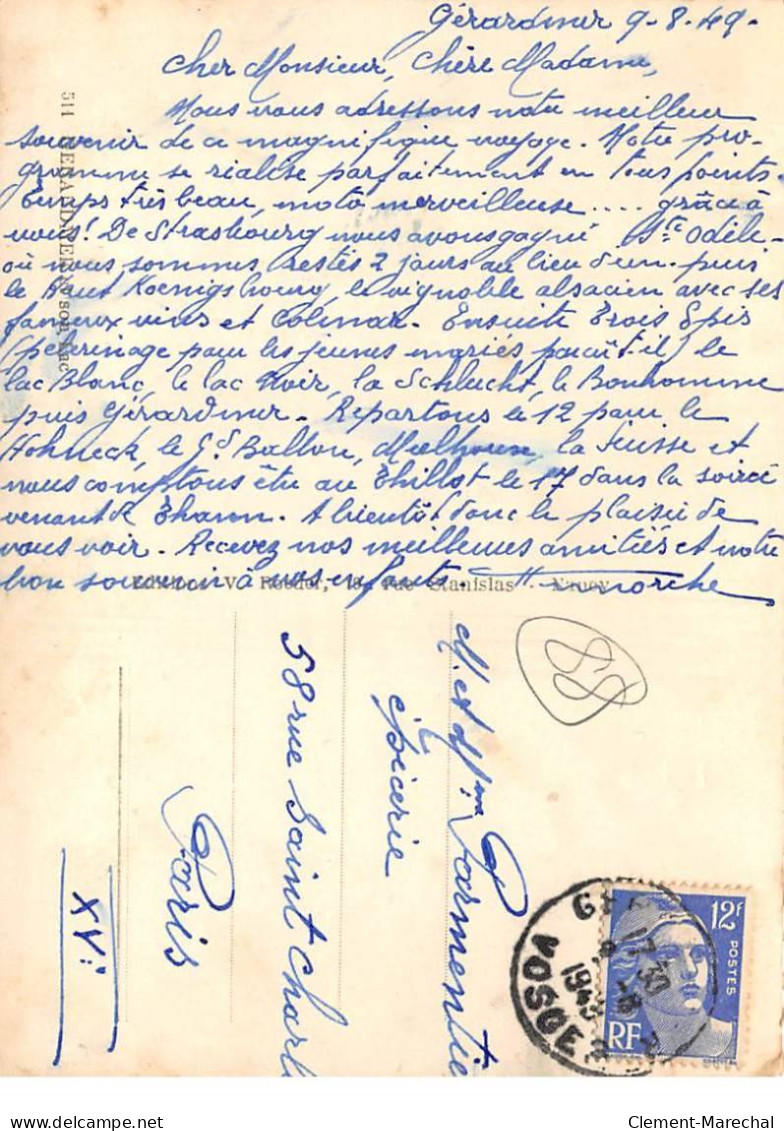 Gérardmer 9-8-49-
Cher Monsieur, Chère Madame,
Nous vous adressons notre meilleur
souvenir de ce magnifique voyage. Notre pro-
gramme se réalise parfaitement en tous points.
Temps très beau, moto merveilleuse .... grâce à
vous! De Strasbourg nous avons gagné Ste Odile
où nous sommes restés 2 jours au lieu d'un. puis
le Haut Koenigsbourg, le vignoble alsacien avec ses
fameux vins et Colmar. Ensuite Trois Epis
(pèlerinage pour les jeunes mariés paraît-il) le
lac Blanc, le lac Noir, la Schlucht, le Bonhomme
puis Gérardmer. Repartons le 12 pour le
Hohneck, le Gd Ballon, Mulhouse, la Suisse et
nous comptons être au Thillot le 17 dans la soirée
venant de Thann. A bientôt donc le plaisir de
vous voir. Recevez nos meilleures amitiés et notre
bon souvenir à vos enfants.
511 GERARDMER
son Lac
Editions V. Roeder, rue Stanislas - Nancy
88
M. et Mme Parmentier
épicerie
58 rue Saint Charl
Paris
XVi
12f
POSTES
RF
17 30
9 -8
1949
VOSGES
Clement-Marechal